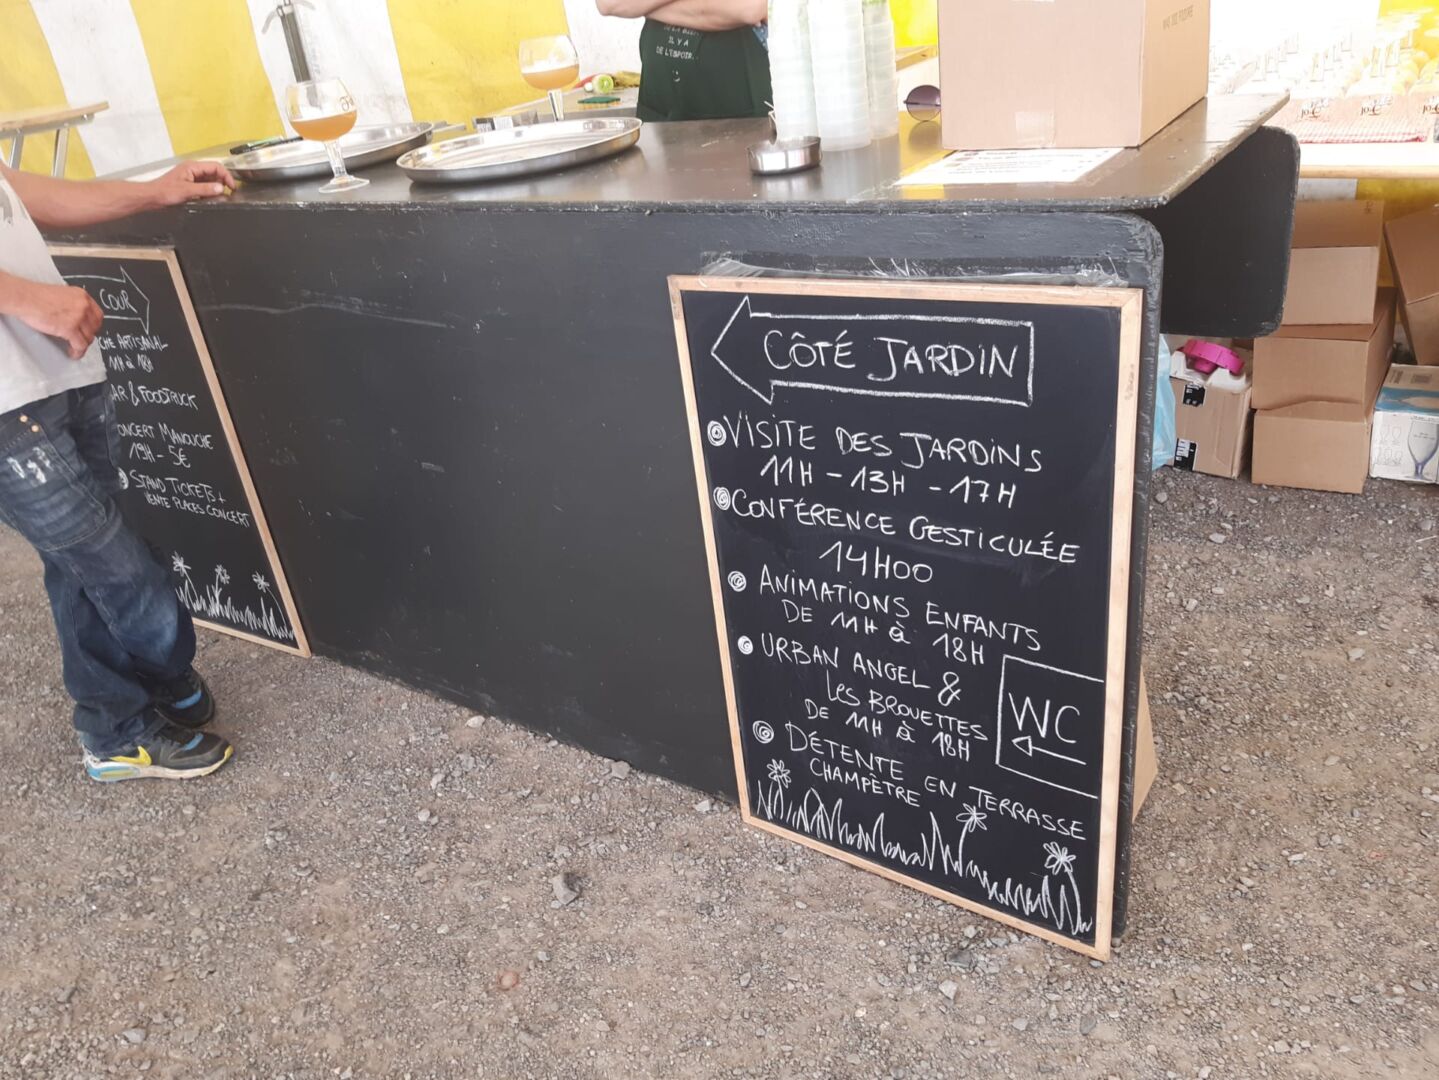 IL Y A
DE L'ESPOIR...
COUR
ARTISANAL
11H à 18H
& FOODTRUCK
MANOUCHE
19H - 5€
STAND TICKETS +
VENTE PLACES CONCERT
CÔTÉ JARDIN
VISITE DES JARDINS
11H - 13H - 17H
CONFÉRENCE GESTICULÉE
14H00
ANIMATIONS ENFANTS
DE 11H à 18H
URBAN ANGEL &
LES BROUETTES
DE 11H à 18H
WC
DÉTENTE EN TERRASSE
CHAMPÊTRE